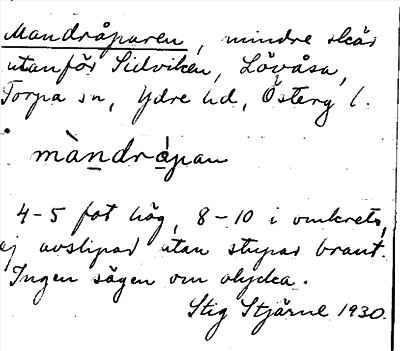 Mandråparen, mindre skär
utanför Sidviken, Lövåsa,
Torpa sn, Ydre hd, Österg l.
màndråpan
4-5 fot hög, 8-10 i omkrets,
ej avslipad utan stupar brant.
Ingen sägen om olycka.
Stig Stjärne 1930.